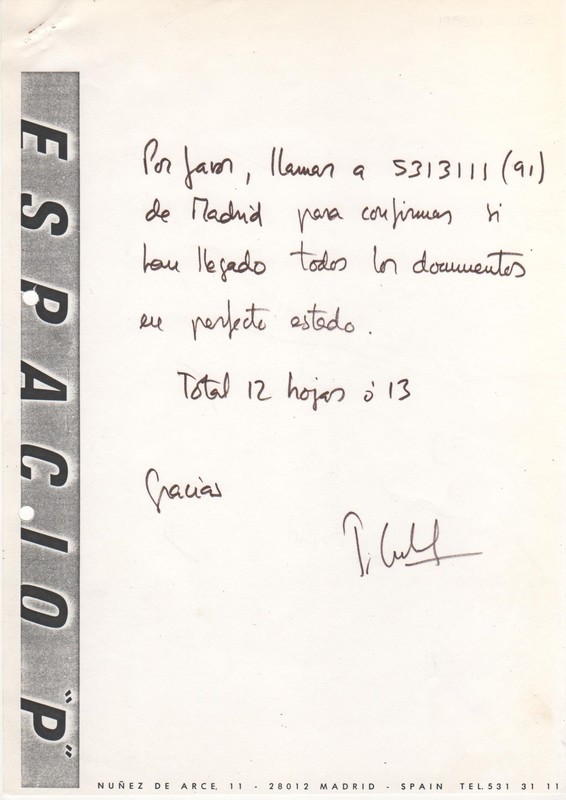 ESPACIO "P"
Por favor, llamar a 5313111 (91)
de Madrid para confirmar si
han llegado todos los documentos
en perfecto estado.
Total 12 hojas ó 13
Gracias
NUÑEZ DE ARCE, 11 - 28012 MADRID - SPAIN TEL.531 31 11